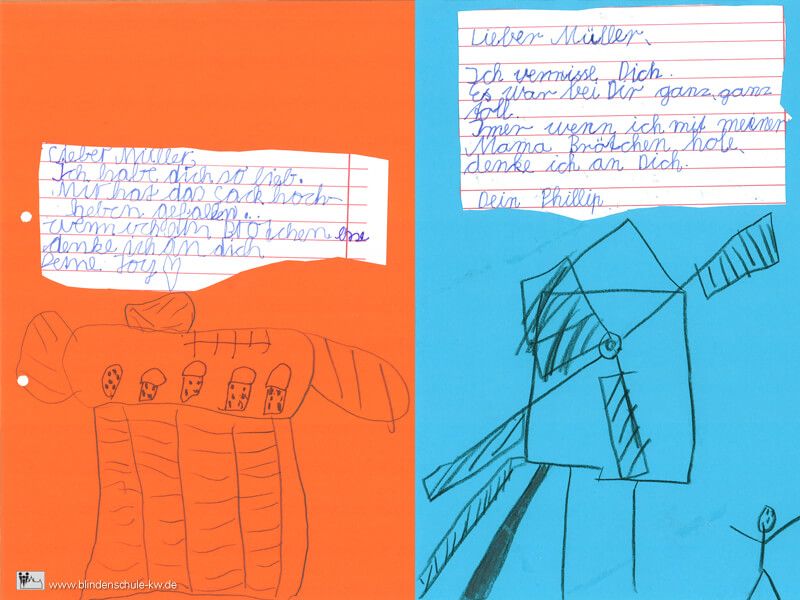 Lieber Müller,
Ich habe dich so lieb.
Mir hat das Sack hoch
heben gefalen...
wenn ich ein Brötchen ess
denke ich an dich
Deine Joy
Lieber Müller,
Ich vermisse Dich.
Es war bei Dir ganz, ganz
toll.
Imer wenn ich mit meiner
Mama Brötchen hole,
denke ich an Dich.
Dein Phillip
www.blindenschule-kw.de